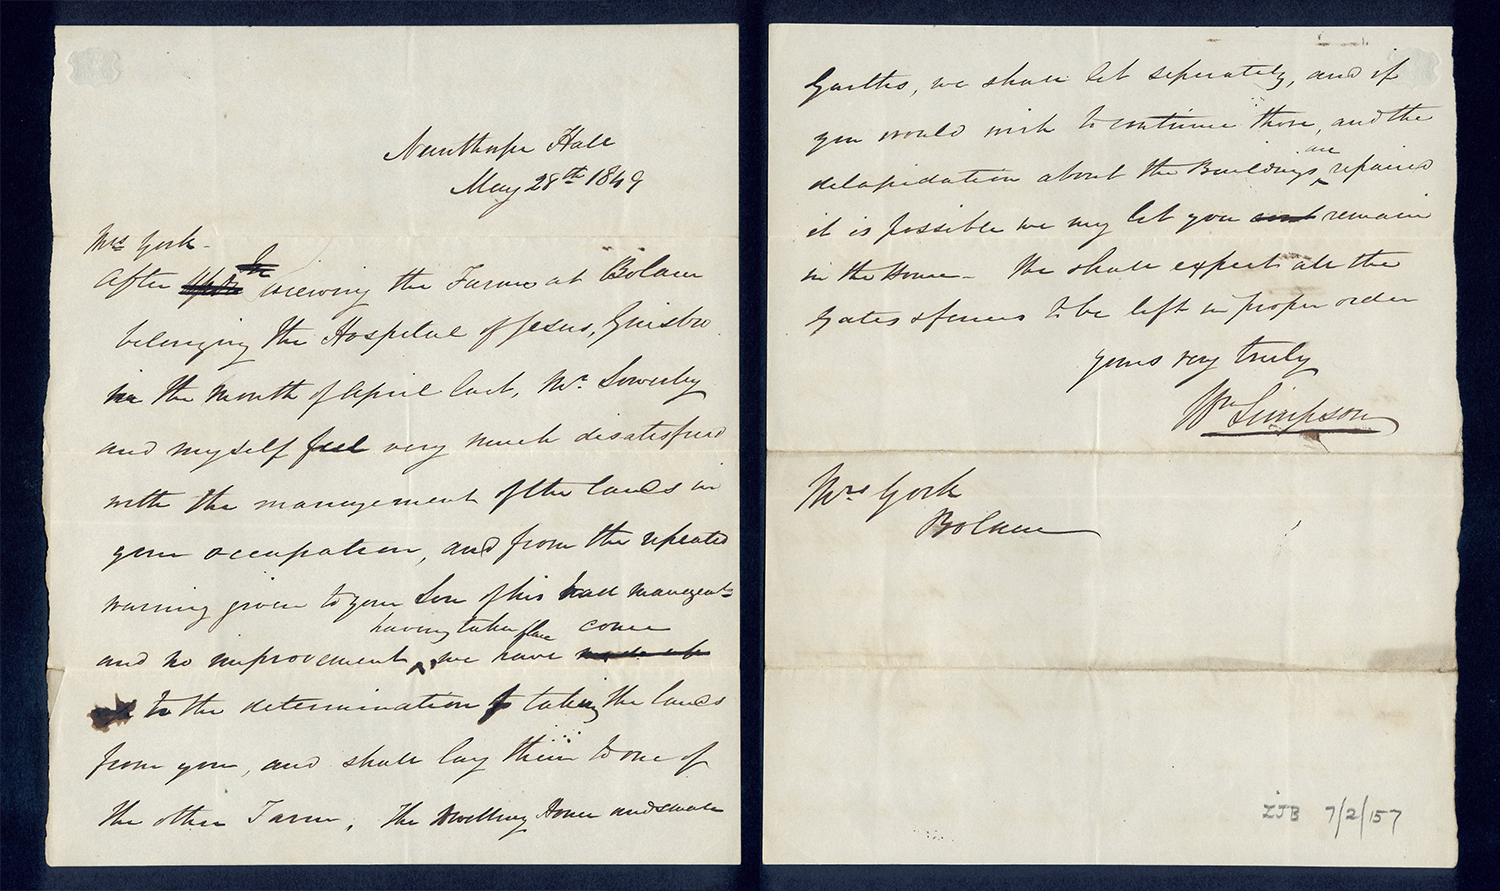 Nunthorpe Hall
May 28th 1849
Mrs York -
After viewing the Farms at Bolam
belonging the Hospital of Jesus, Guisbro
in the Month of April last, Mr. Sowerby
and myself feel very much disatisfied
with the management of the lands in
your occupation, and from the repeated
warning given to your Son of his bad managemt
having taken place come
and no improvement ^ we have made up
to the determination of taking the lands
from you, and shall lay them to one of
the other Farm, The Dwelling House and small
Garths, we shall let seperately, and if
you would wish to continue those, and the
are
delapidation about the Buildings ^ repaired
it is possible we my let you and remain
in the House - We shall expect all the
Gates & fences to be left in proper order
yours very truly
Wm Simpson
Mrs York
Bolam
ZJB 7/2/157